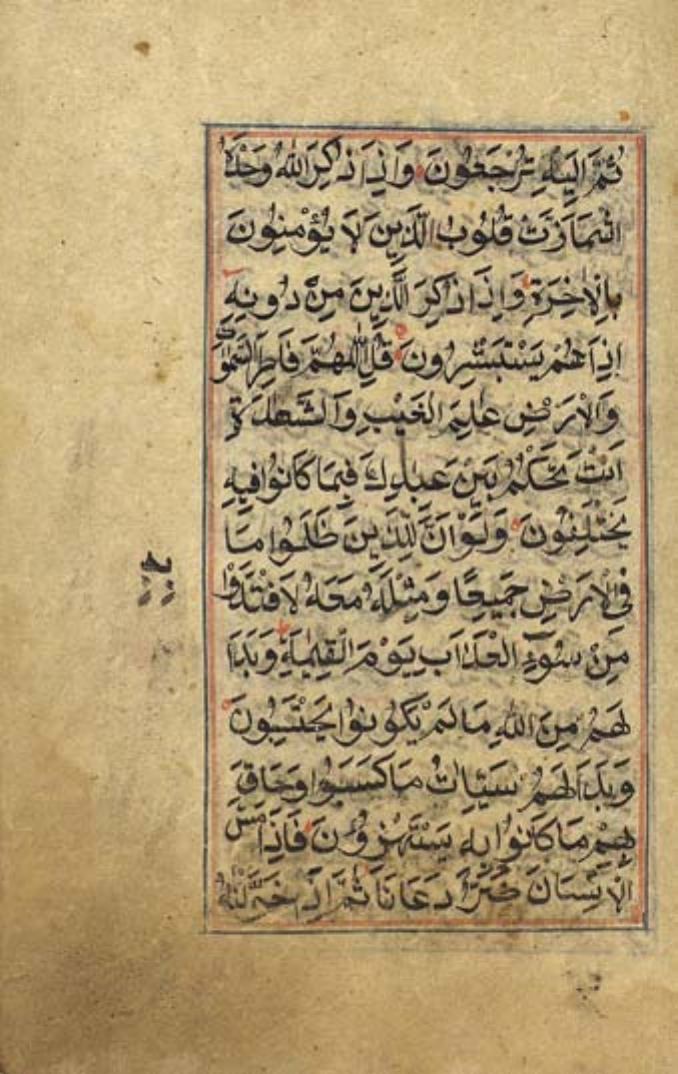 ثُمَّ اِلَيْهِ تُرْجَعُونَ وَاِذَا ذُكِرَ اللّٰهُ وَحْدَهُ
اشْمَاَزَّتْ قُلُوبُ الَّذِينَ لَا يُؤْمِنُونَ
بِالْاٰخِرَةِ وَاِذَا ذُكِرَ الَّذِينَ مِنْ دُونِهِ
اِذَا هُمْ يَسْتَبْشِرُونَ قُلِ اللّٰهُمَّ فَاطِرَ السَّمٰوٰتِ
وَالْاَرْضِ عٰلِمَ الْغَيْبِ وَالشَّهٰدَةِ
اَنْتَ تَحْكُمُ بَيْنَ عِبَادِكَ فِيمَا كَانُوا فِيهِ
يَخْتَلِفُونَ وَلَوْ اَنَّ لِلَّذِينَ ظَلَمُوا مَا
فِى الْاَرْضِ جَمِيعًا وَمِثْلَهُ مَعَهُ لَافْتَدَوْا
مِنْ سُوٓءِ الْعَذَابِ يَوْمَ الْقِيٰمَةِ وَبَدَا
لَهُمْ مِنَ اللّٰهِ مَا لَمْ يَكُونُوا يَحْتَسِبُونَ
وَبَدَا لَهُمْ سَيِّاٰتُ مَا كَسَبُوا وَحَاقَ
بِهِمْ مَا كَانُوا بِهِ يَسْتَهْزِؤُنَ فَاِذَا مَسَّ
الْاِنْسَانَ ضُرٌّ دَعَانَا ثُمَّ اِذَا خَوَّلْنٰهُ